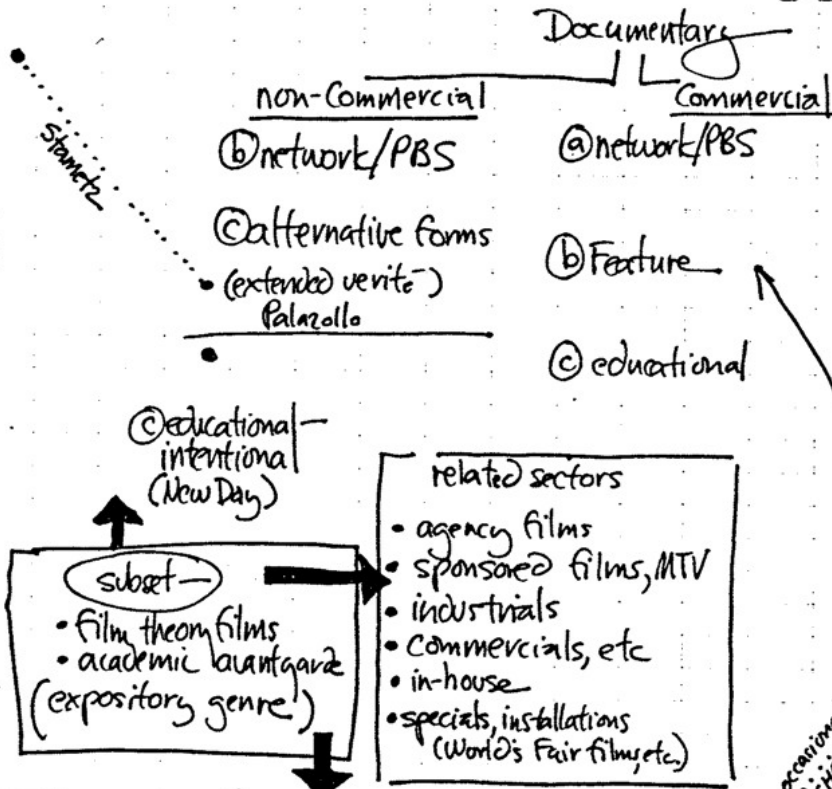 Documentary
non-Commercial
Commercial
ⓑ network/PBS
ⓐ network/PBS
Stametz
ⓒ alternative forms
(extended verité)
Palazollo
ⓑ Feature
ⓒ educational
ⓒ educational—
intentional
(New Day)
subset—
• film theory films
• academic avantgarde
(expository genre)
related sectors
• agency films
• sponsored films, MTV
• industrials
• Commercials, etc
• in-house
• specials, installations
(World's Fair films, etc.)